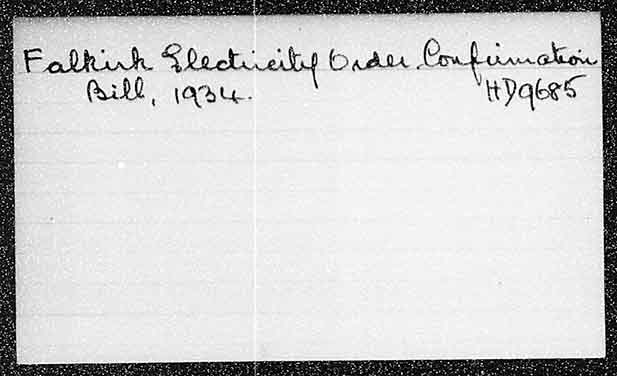 Falkirk Electricity Order Confirmation
Bill, 1934. HD9685